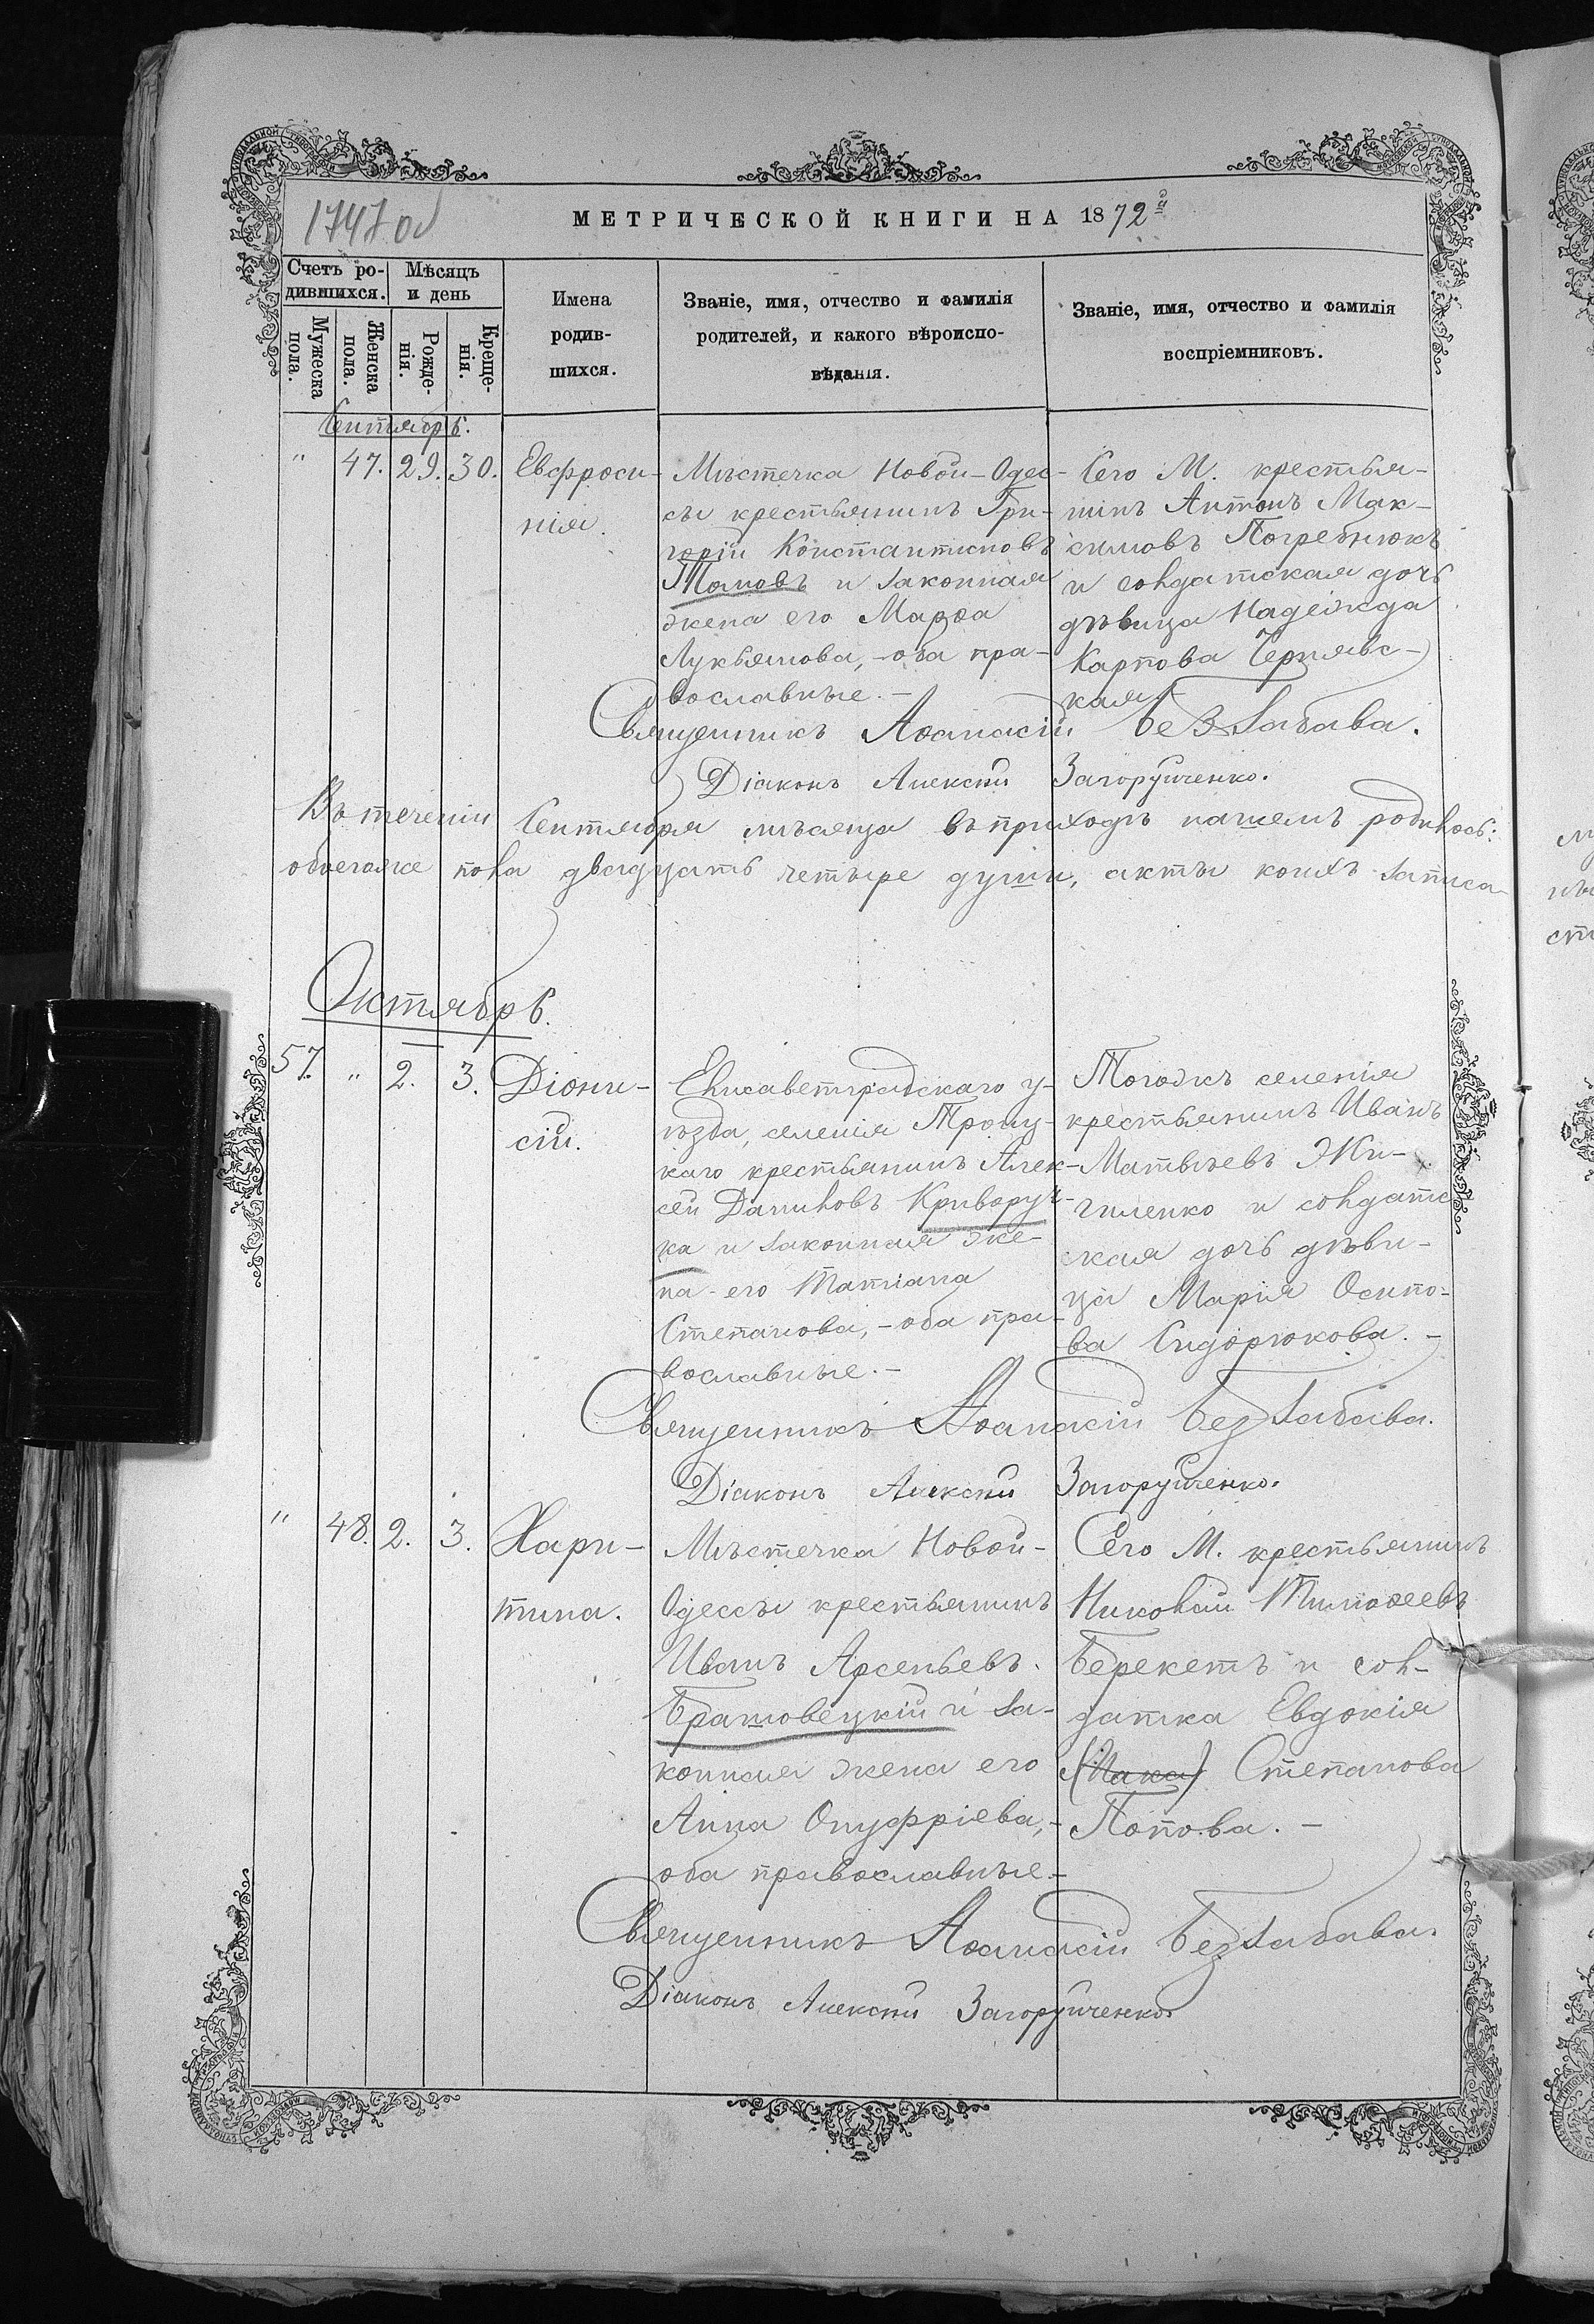 1747 об
МЕТРИЧЕСКОЙ КНИГИ НА 1872й
Счетъ ро-
дившихся.
Мѣсяцъ
и день
Мужеска
пола.
Женска
пола.
Рожде-
нія.
Креще-
нія.
Имена
родив-
шихся.
Званіе, имя, отчество и фамилія
родителей, и какого вѣроиспо-
вѣданія.
Званіе, имя, отчество и фамилія
воспріемниковъ.
Сентябрь.
" 47. 29. 30.
Евфроси-
нія.
Мѣстечка Новой-Одес-
сы крестьянинъ Гри-
горій Константиновъ
Томовъ и законная
жена его Марѳа
Лукьянова, - оба пра-
вославные. -
Сего М. крестья-
нинъ Антонъ Мак-
симовъ Погребнюкъ
и солдатская дочь
дѣвица Надежда
Карпова Чернявс-
кая. -
Священникъ Аѳанасій Беззабава.
Діаконъ Алексѣй Загоруйченко.
Въ теченіи Сентября мѣсяца въ приходѣ нашемъ родилось:
обоегоже пола двадцать четыре души, акты коихъ записа-
Октябрь.
57. " 2. 3.
Діони-
сій.
Елисаветградскаго у-
ѣзда, селенія Троиц-
каго крестьянинъ Алек-
сѣй Даниловъ Криворуч-
ка и законная же-
на - его Татіана
Степанова, - оба пра-
вославные. -
Тогожъ селенія
крестьянинъ Иванъ
Матвѣевъ Жи-
гиленко и солдатс-
кая дочь дѣви-
ца Марія Осипо-
ва Сидорюкова. -
Священникъ Аѳанасій Беззабава.
Діаконъ Алексѣй Загоруйченко.
" 48. 2. 3.
Хари-
тина.
Мѣстечка Новой-
Одессы крестьянинъ
Иванъ Арсеньевъ
Брашовецкій и за-
конная жена его
Анна Онуфріева, -
оба православные. -
Сего М. крестьянинъ
Николай Тимоѳеевъ
Берекетъ и сол-
датка Евдокія
(Мака) Степанова
Попова. -
Священникъ Аѳанасій Беззабава.
Діаконъ Алексѣй Загоруйченко.